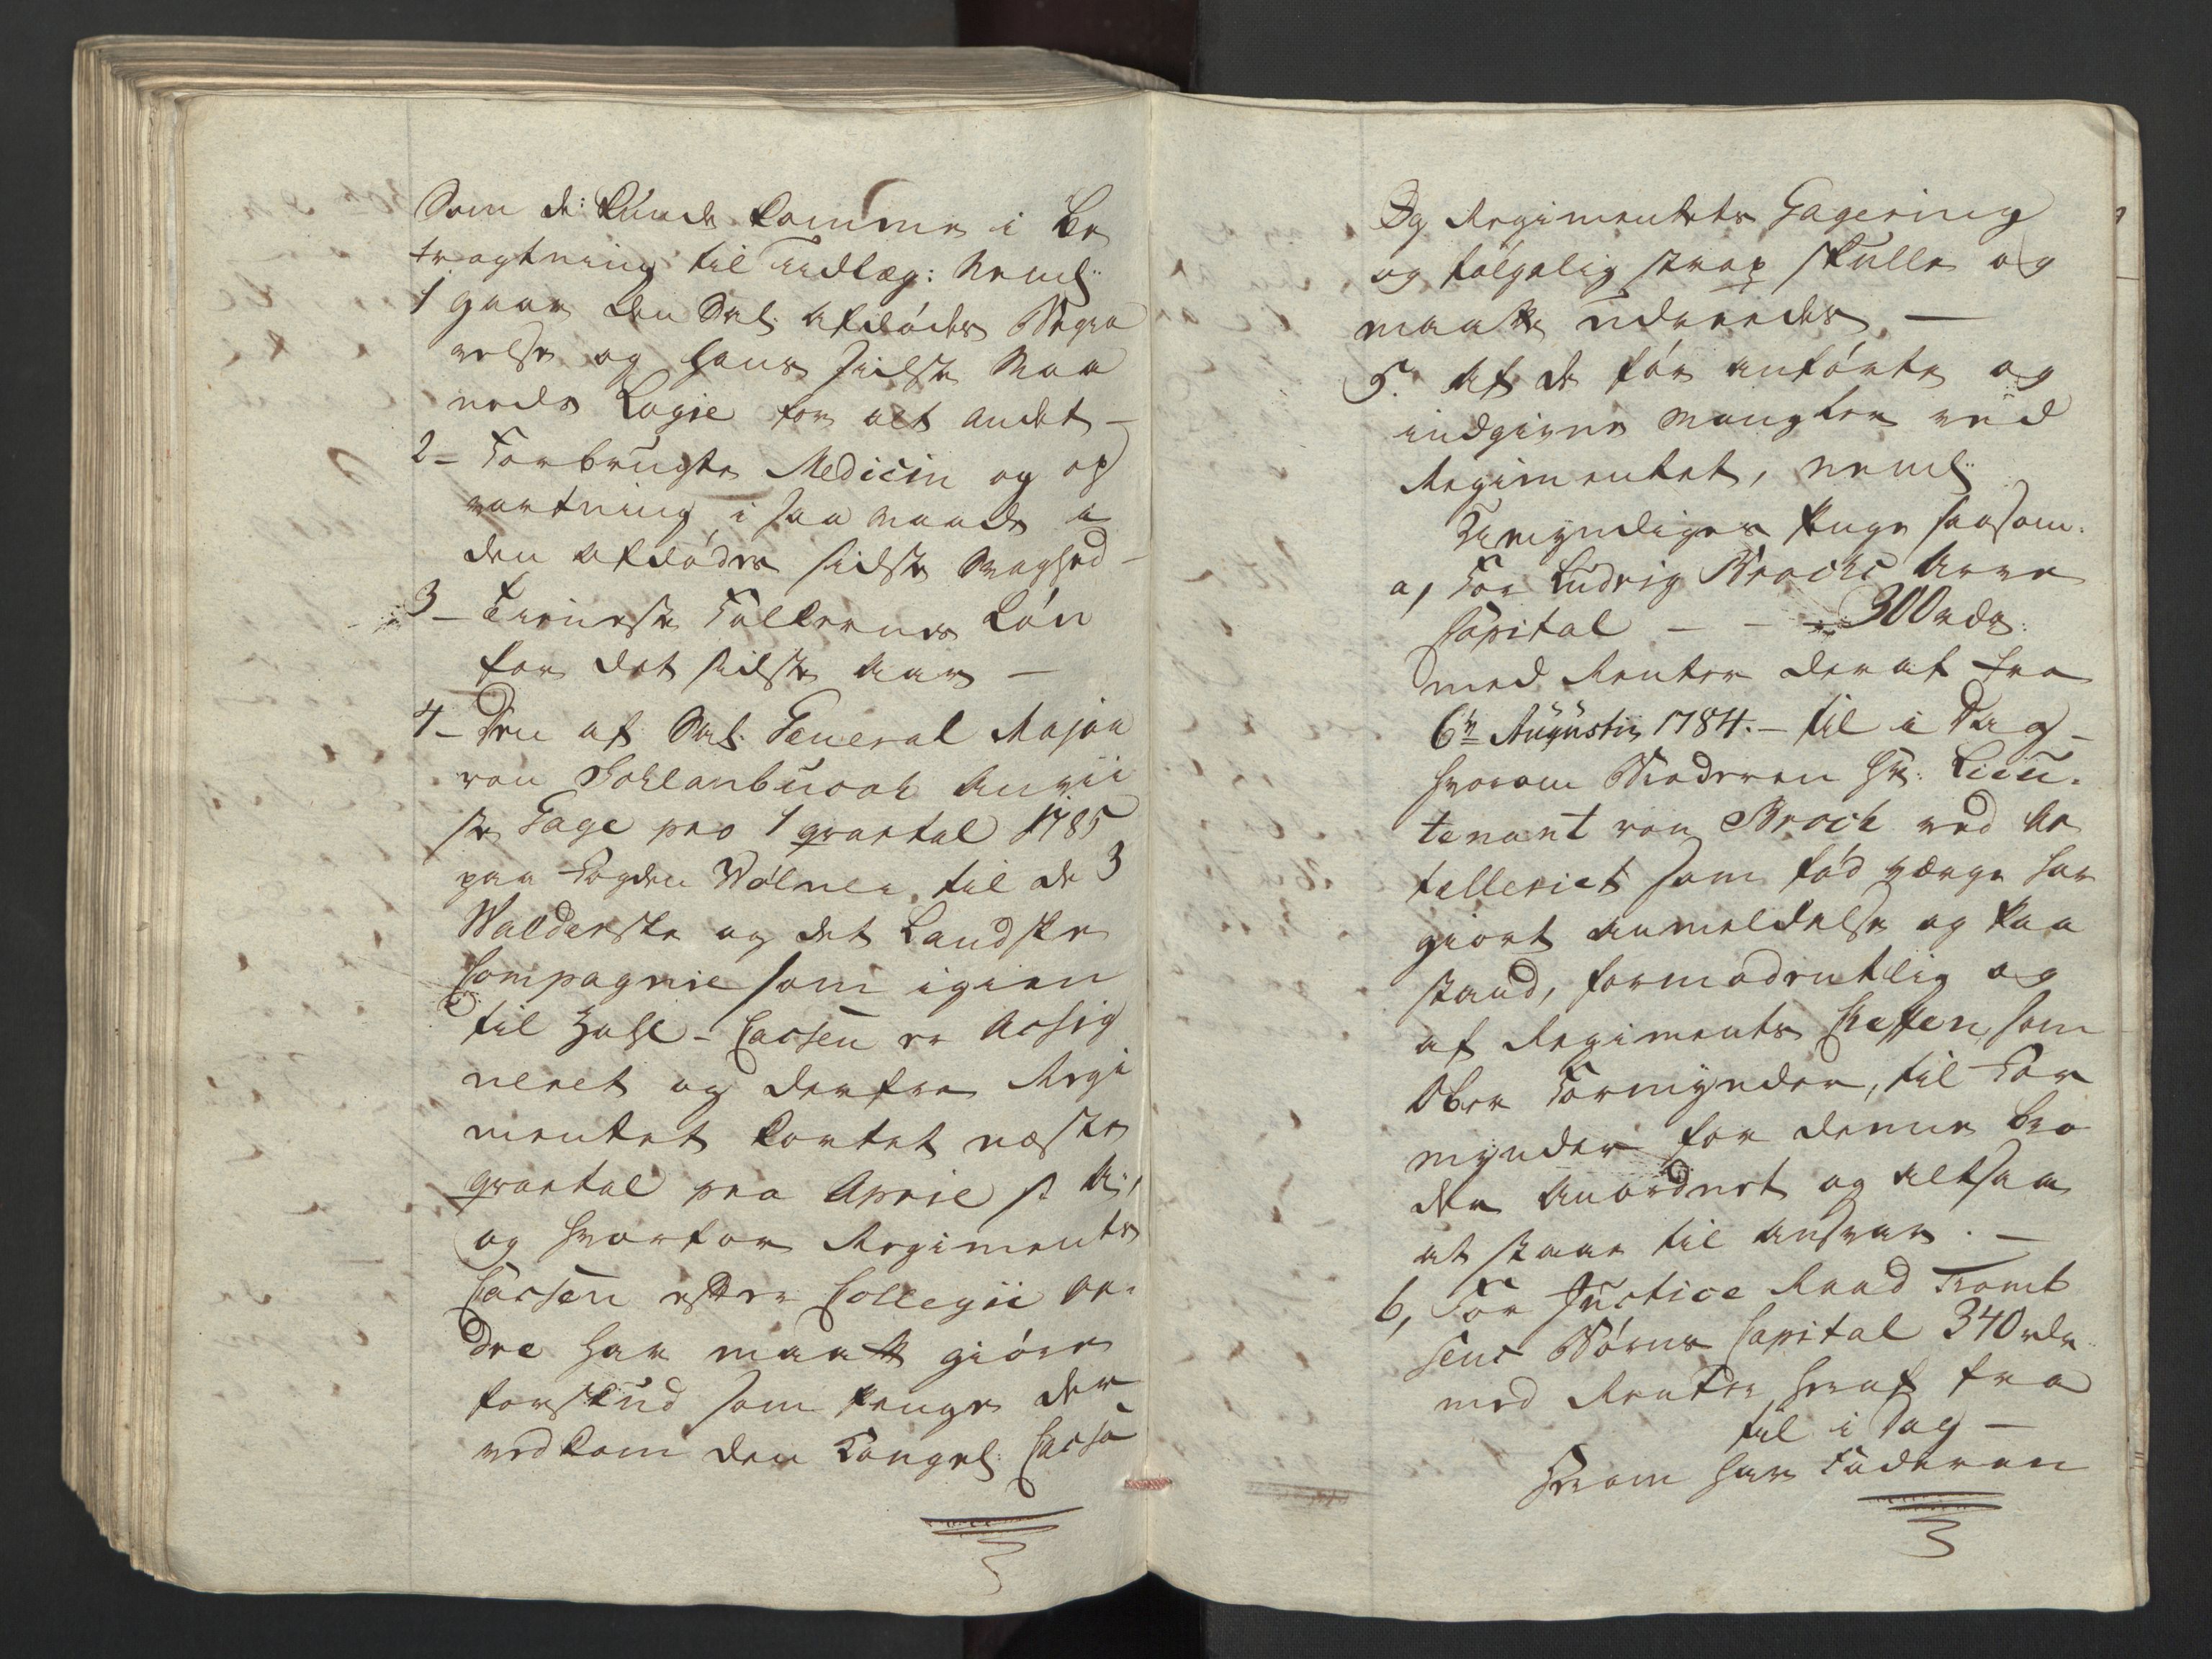 Som de: kunde komme i be
tragtning til udlæg: neml:
1 gaar den Sal: afdødes Begra
velse og hans sidste Maa
neds Logie for alt andet –
2 – Forbrugte Medicin og op
vartning i saa maade a
den afdødes sidste svaghed –
3 – tieneste Folkernes Løn
for det sidste aar –
4 – Den af Sal: General Major
von anvii
ste Gage pro 1 qvartal 1785
paa Fogden til de 3
Walderske og det Landske
Compagnie som igien
til Zahl-Cassen er Assig
neret og derfra Regi
mentet kortet næste
qvartal pro April s: A:,
og hvorfor Regiments
Cassen efter Collegii or-
dre har maatt giøre
forskud som penge der
vedkom den Kongel: Cassa
Og Regimentets Gagering
og følgelig strax skulle og
maatte udreedes –
5. Af de før anførte og
indgivne mangler ved
Regimentet, neml:
Umyndiges penge saasom:
a, For Ludvig Brochs Arve
Capital – – – 300 rdr:
med Renter deraf fra
6te Augusti 1784. – til i Dag –
hvorom Broderen Hr: Lieu-
tenant von Broch ved Ar
telleriet som fød værge har
giort anmeldelse og paa
stand, formodentlig og
af Regiments Cheffen, som
Ober Formynder, til For
mynder for denne bro
der anordnet og altsaa
at staae til ansvar. –
b, For Justice Raad
sens Børns Capital 340 rdr
med Renter heraf fra
til i Dag –
Hvorom har Faderen